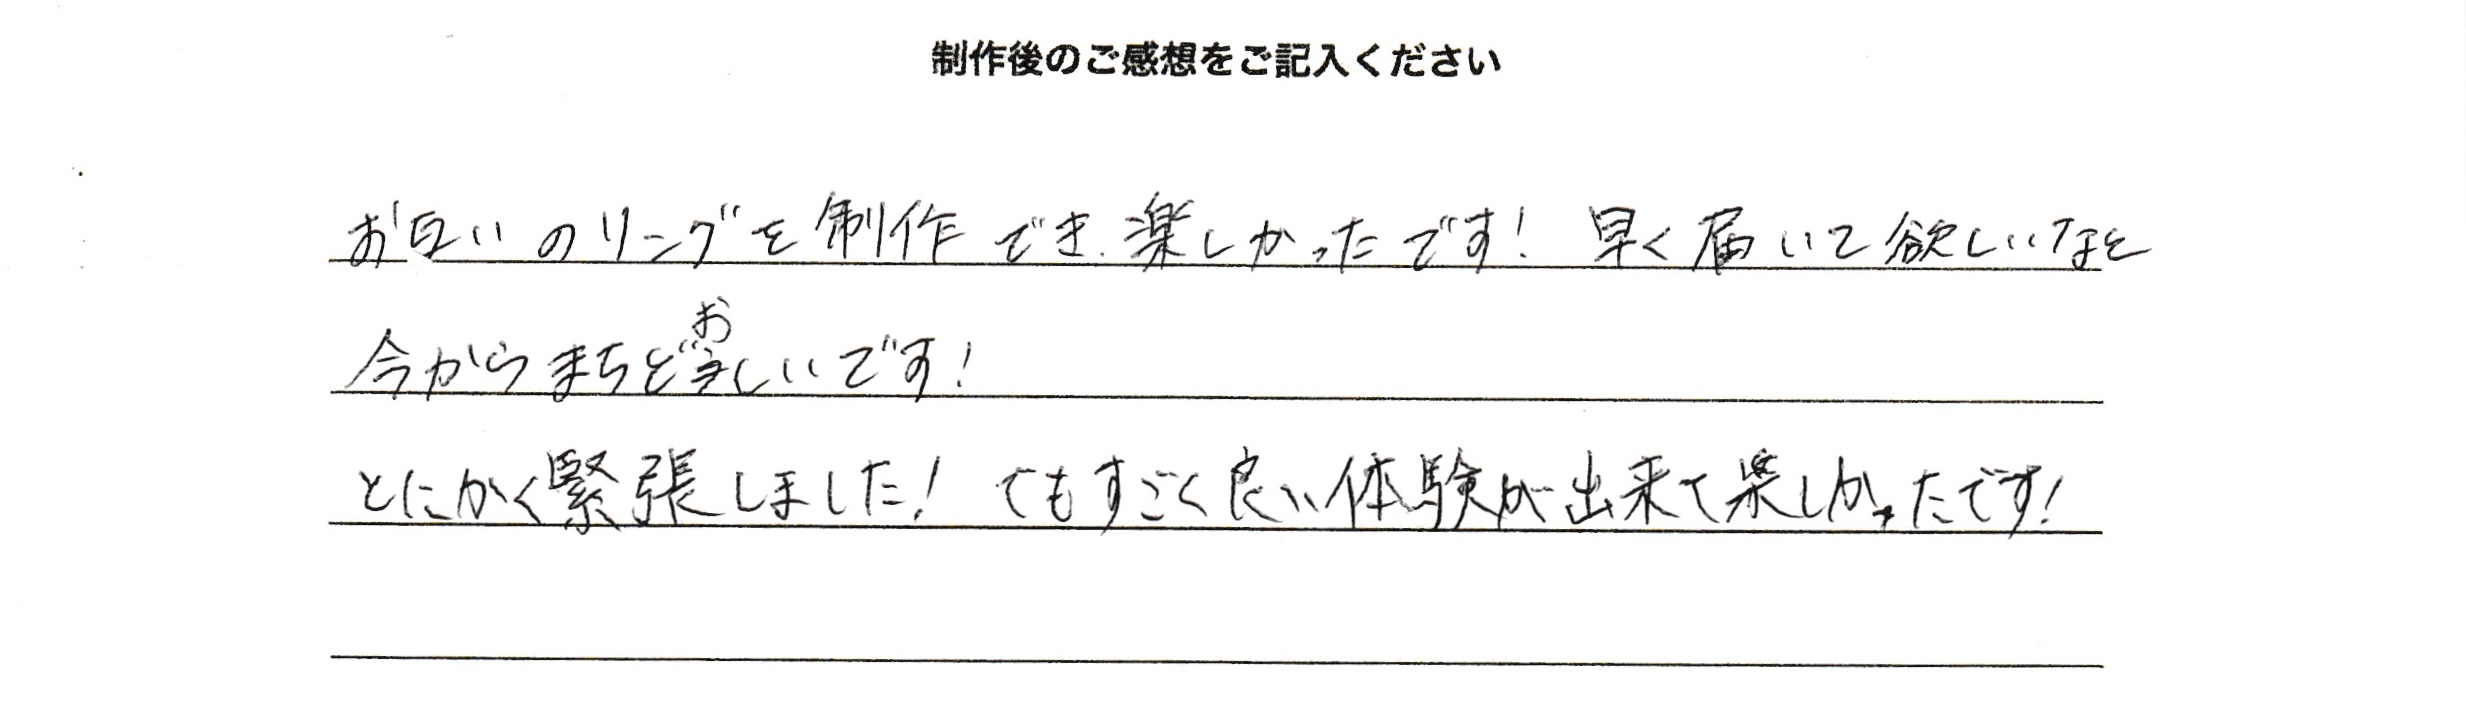 制作後のご感想をご記入ください
お互いのリングを制作でき、楽しかったです! 早く届いて欲しいなと
今からまちどおしいです!
とにかく緊張しました! でもすごく良い体験が出来て楽しかったです!